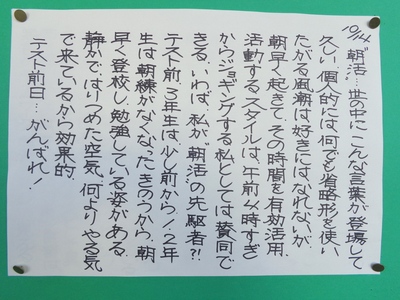 10/14 "朝活"…世の中にこんな言葉が登場して
久しい。個人的には何でも省略形を使い
たがる風潮は好きにはなれないが、
朝早く起きて、その時間を有効活用、
活動するスタイルは、午前4時すぎ
からジョギングする私としては賛同で
きる。いわば、私が"朝活"の先駆者?!
テスト前、3年生は少し前から、1、2年
生は朝練がなくなったきのうから、朝
早く登校し、勉強している姿がある。
静かではりつめた空気、何よりやる気
で来ているから効果的。
テスト前日…がんばれ!